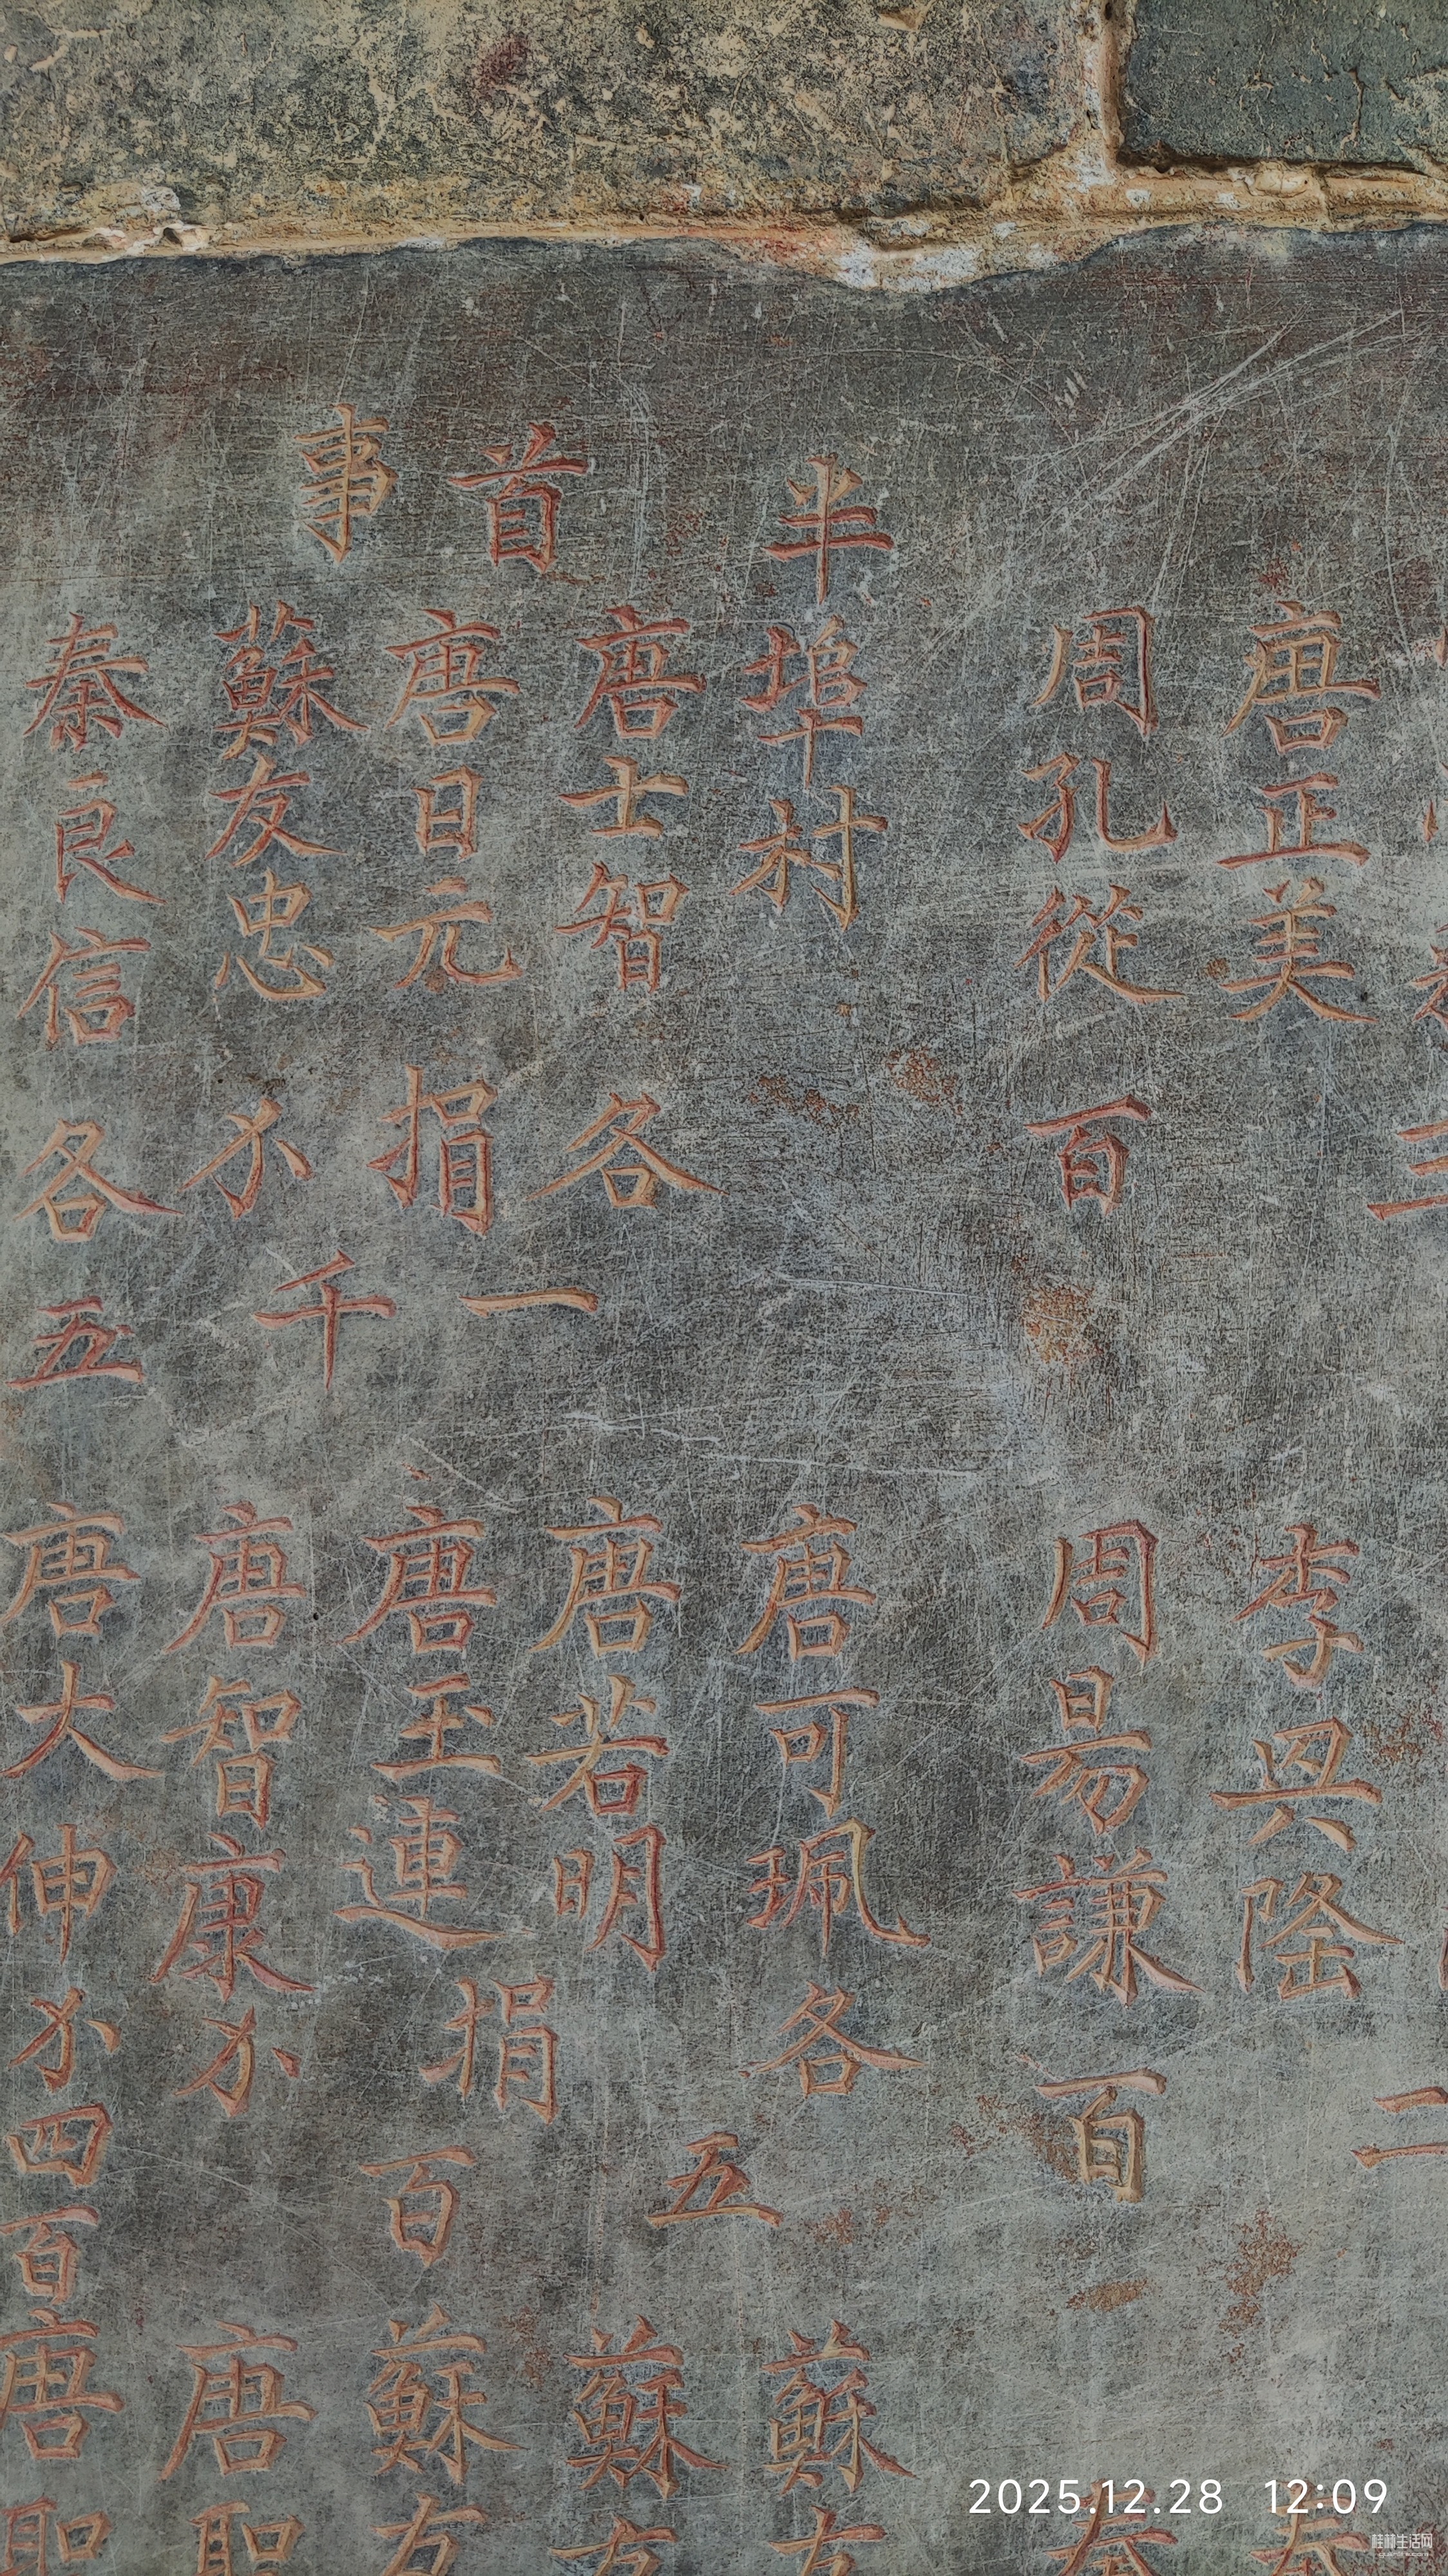 唐正美
李興隆
周孔從百
周易謙百
半埠村
唐可珮各
五
蘇
首事
唐士智各
唐若明
蘇
唐日元捐
一千
唐玉連捐
百
蘇
蘇友忠
唐智康
唐
秦良信各五
唐大伸
四百
唐